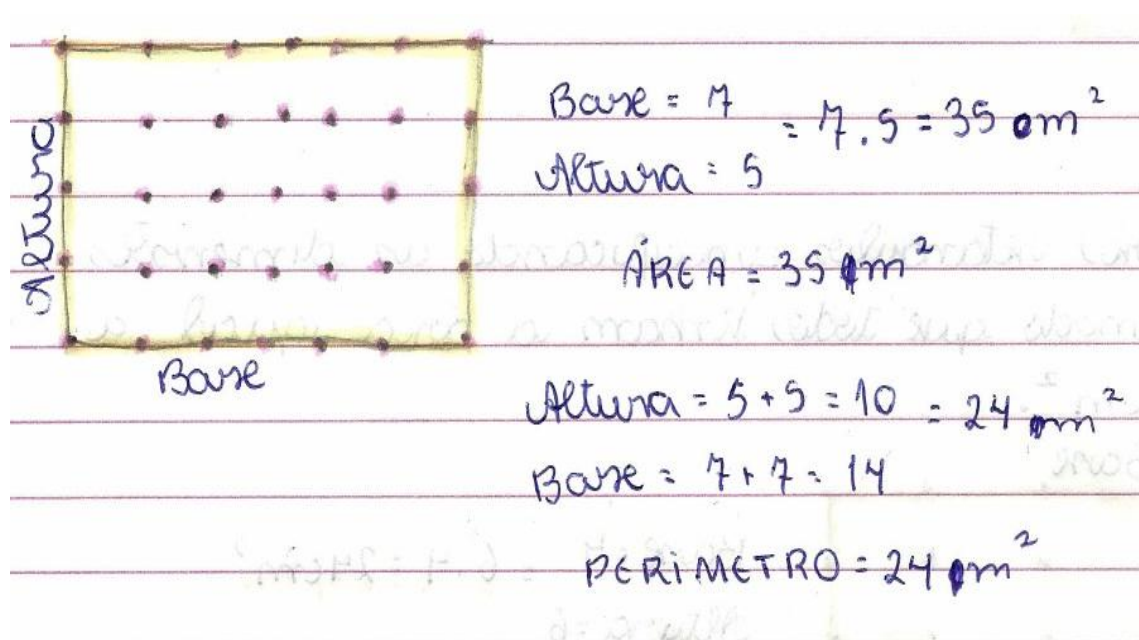 Altura
Base
Base = 7
Altura = 5
= 7.5 = 35 cm²
ÁREA = 35 cm²
Altura = 5 + 5 = 10
Base = 7 + 7 = 14
= 24 cm²
PERIMETRO = 24 cm²